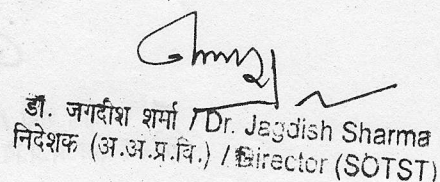 डॉ. जगदीश शर्मा / Dr. Jagdish Sharma
निदेशक (अ.अ.प्र.वि.) / Director (SOTST)